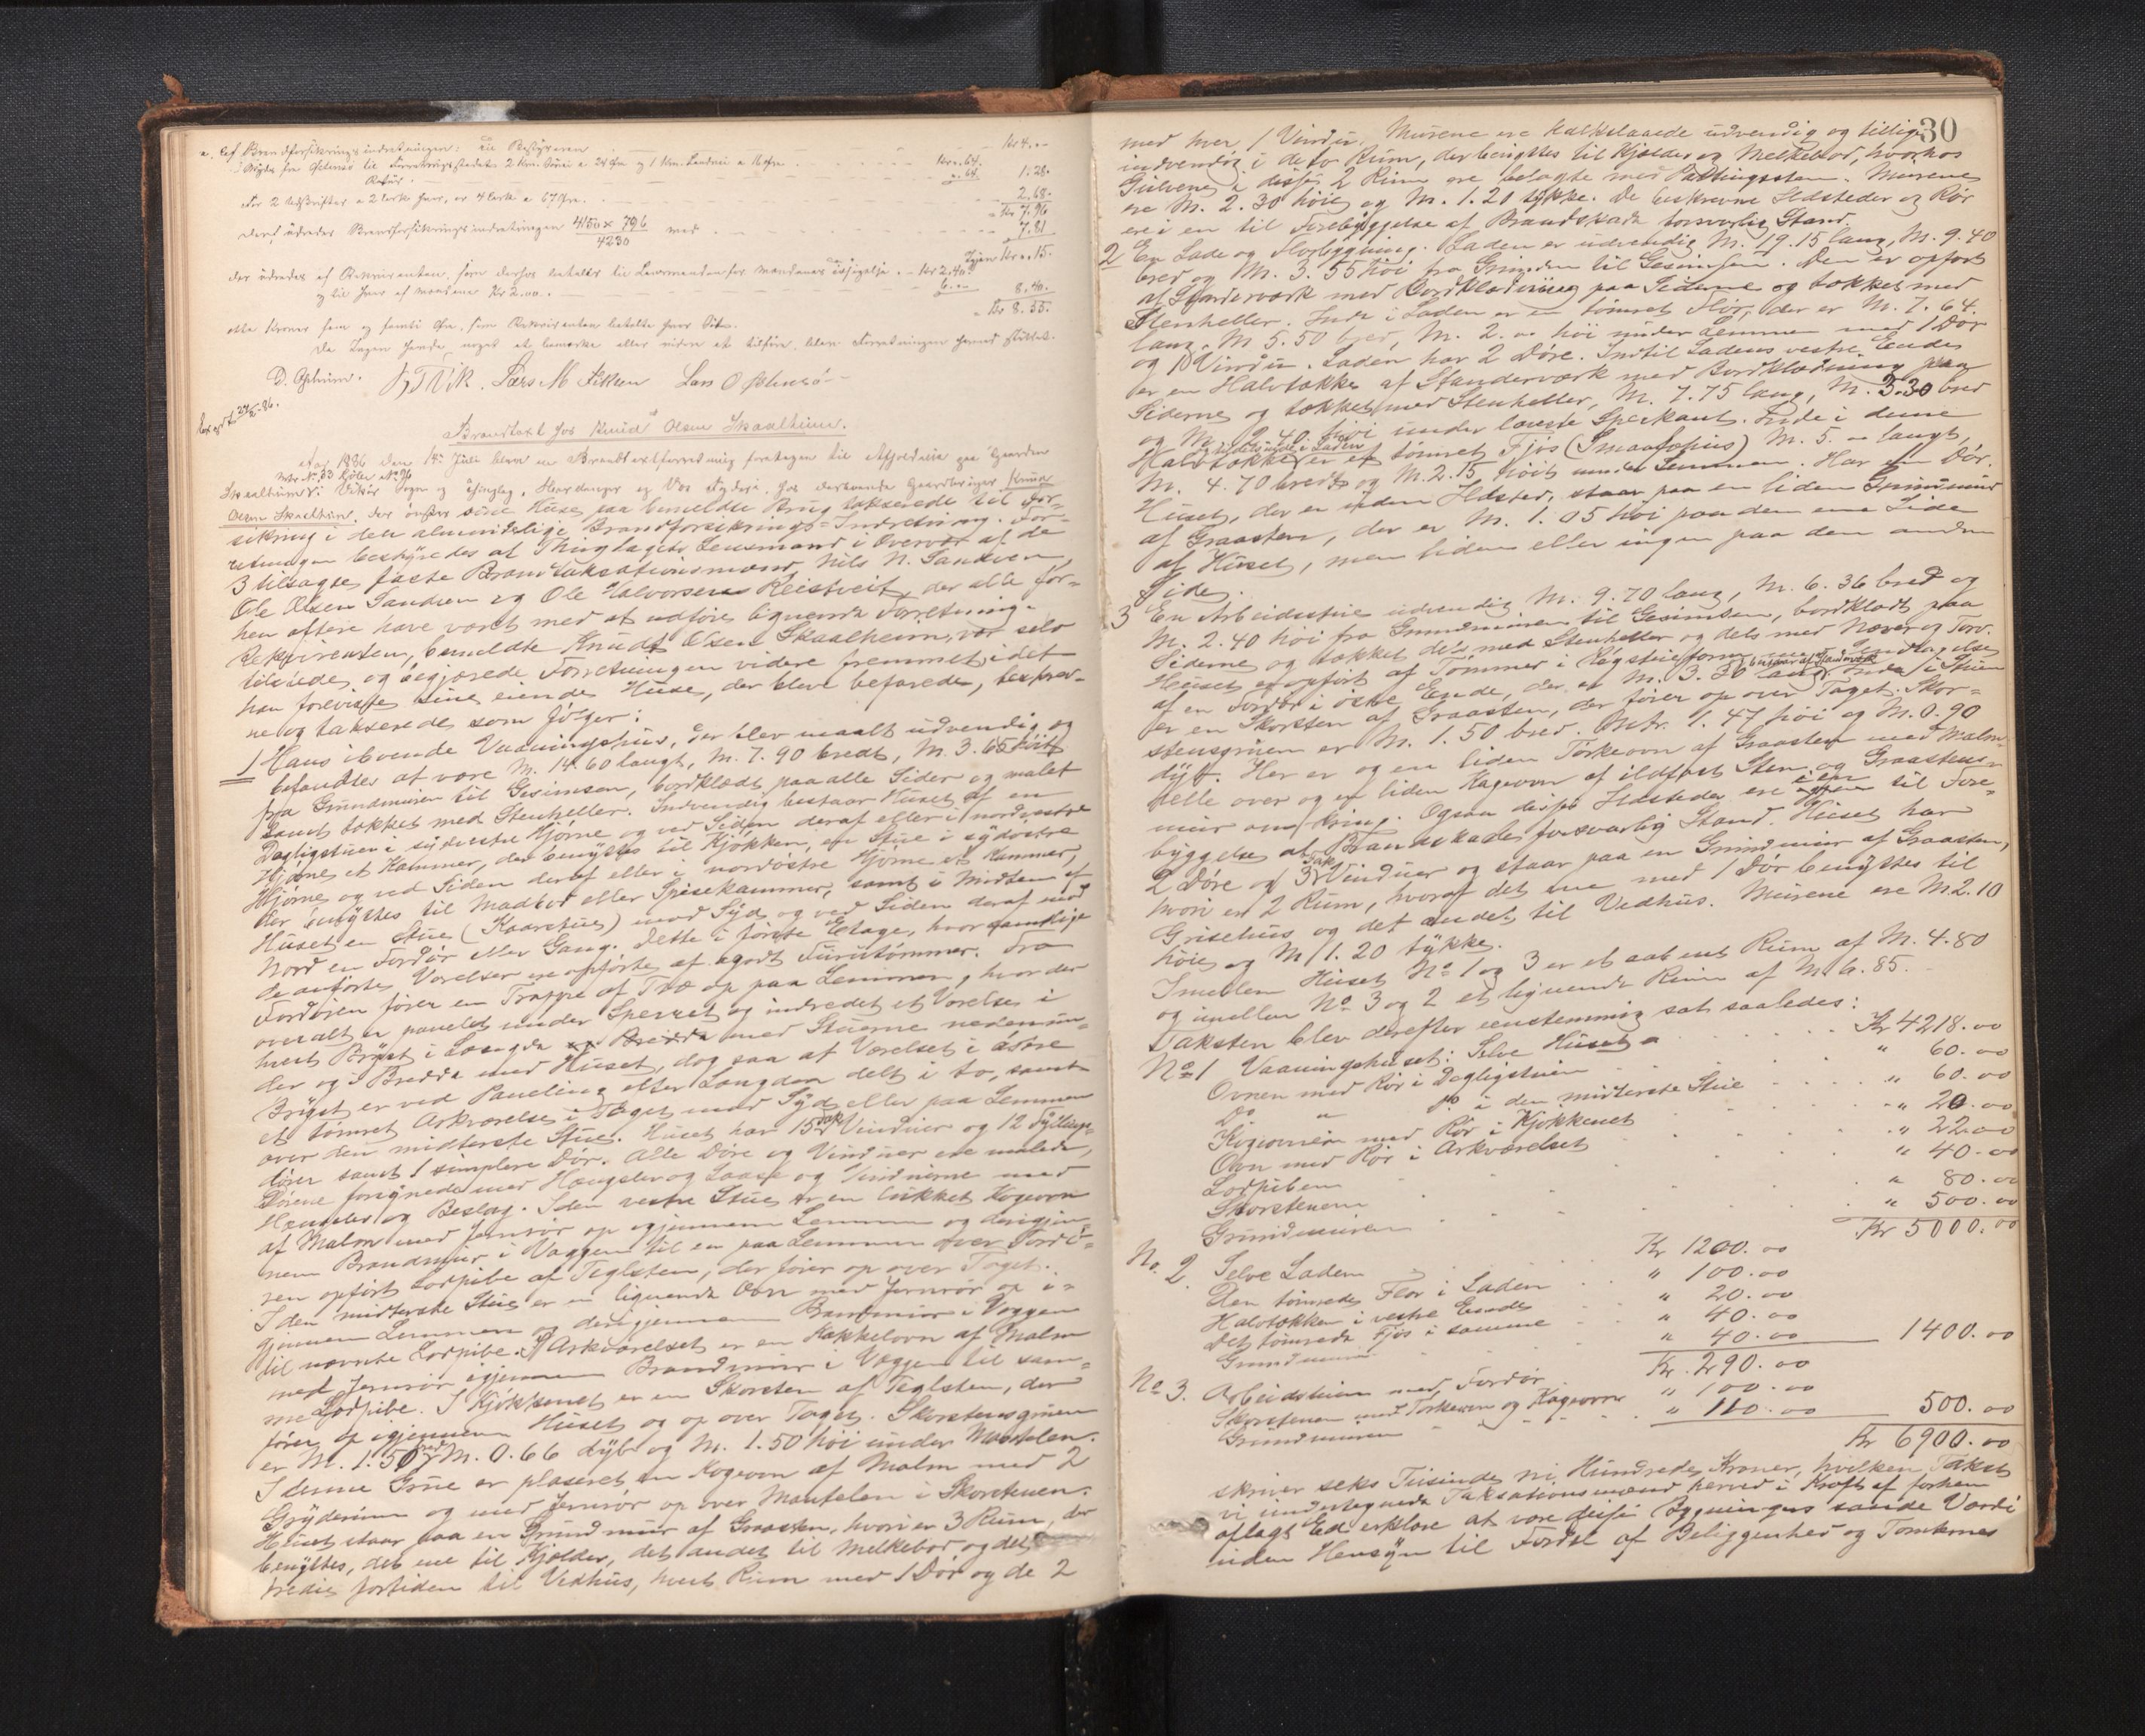 a. Af Brandforsikringsindretningen: til Bestyreren Kr 4. "
For 2 Udskrifter a 2 Ark hver, er 4 Ark a 67 Øre. 2.68.
" Kr 7.96
deraf udreder Brandforsikringsindretningen 4150 x 796 / 4230 med 7.81
Igjen Kr 0.15.
der udredes af Rekvirenten, som derhos betaler til Lensmanden for Mændenes Kr 2.40.
og til hver af Mændene Kr 2.00. 6. " 8.40.
" Kr 8.55.
otte Kroner fem og femti Øre, som Rekvirenten betalte
Da Ingen havde noget at bemærke eller videre at tilføre, blev Forretningen hermed sluttet.
Lars M Lars O
Brandtaxt hos Knud Olsen Skaalheim.
Aar 1886 den Juli blev en Brandtaxtforretning foretagen til Afholdelse paa Gaarden
Skaalheim i Vikør Sogn og Thinglag, Hardanger og Vos Fogderi, hos derboende Gaardbruger Knud
Olsen Skaalheim, der ønsker sine Huse paa bemeldte Brug takserede til For-
sikring i den almindelige Brandforsikrings-Indretning. For-
retningen bestyredes af Thinglagets Lensmand i Overvær af de
3 tilsagte faste Brandtaksationsmænd Nils N. Sandven,
Ole Olsen Sandven og Ole Halvorsen Reistveit, der alle før-
hen oftere have været med at udføre lignende Forretning.
Rekvirenten, bemeldte Knudt Olsen Skaalheim, var selv
tilstede, og begjærede Forretningen videre fremmet, idet
han foreviste sine eiende Huse, der bleve befarede, beskrev-
ne og takserede som følger:
1 Hans iboende Vaaningshus, der blev maalt udvendig og
befandtes at være M. 14.60 langt, M. 7.90 bredt, M. 3.65 høit
fra Grundmuren til Gesimsen, bordklædt paa alle Sider og malet
samt tækket med Stenheller. Indvendig bestaar Huset af en
Dagligstue i sydvestre Hjørne og ved Siden deraf eller i nordvestre
Hjørne et Kammer, der benyttes til Kjøkken, en Stue i sydøstre
Hjørne og ved Siden deraf eller i nordøstre Hjørne et Kammer,
der benyttes til Madbod eller Spisekammer, samt i Midten af
Huset en Stue (Kaarstue) mod Syd og ved Siden deraf mod
Nord en Fordør eller Gang. Dette i første Etage, hvor samtlige
de anførte Værelser ere opførte af godt Furutømmer. Fra
Fordøren fører en Trappe af Træ op paa Lemmen, hvor der
overalt er panelet under Sperret og indredet et Værelse i
hvert Bryst i Længde med Stuerne nedenun-
der og i Bredde med Huset, dog saa at Værelset i østre
Bryst er ved Paneling efter Længden delt i to, samt
et tømret Arkværelse i Taget mod Syd eller paa Lemmen
over den midterste Stue. Huset har 15 Fak Vinduer og 12 Fyllings-
døre samt 1 simplere Dør. Alle Døre og Vinduer ere malede,
Dørene forsynede med Hængsler og Laase og Vinduerne med
Hængsler og Beslag. I den vestre Stue er en lukket Kogeovn
af Malm med Jernrør op igjennem Lemmen og derigjen-
nem Brandmur i Væggen til en paa Lemmen over Fordø-
ren opført Lodpibe af Teglsten, der fører op over Taget.
I den midterste Stue er en lignende Ovn med Jernrør op i-
gjennem Lemmen og derigjennem Brandmur i Væggen
til nævnte Lodpibe. I Arkværelset er en Kakkelovn af Malm
med Jernrør igjennem Brandmur i Væggen til sam-
me Lodpibe. I Kjøkkenet er en Skorsten af Teglsten, der
fører op igjennem Huset og op over Taget. Skorstensgruen
er M. 1.50 bred, M. 0.66 dyb og M. 1.50 høi under Mantelen.
I denne Grue er plaseret en Kogeovn af Malm med 2
Gryderum og med Jernrør op over Mantelen i Skorstenen.
Huset staar paa en Grundmur af Graasten, hvori er 3 Rum, der
benyttes, det ene til Kjælder, det andet til Melkebod og det
tredie fortiden til Vedhus, hvert Rum med 1 Dør og de 2
30
med hver 1 Vindu. Murene ere kalkslaaede udvendig og tillige
indvendig i de to Rum, der benyttes til Kjælder og Melkebod, hvorhos
Gulvene i disse 2 Rum ere belagte med Murene
ere M. 2.30 høie og M. 1.20 tykke. De beskrevne Ildsteder og Rør
ere i en til Forebyggelse af Brandskade forsvarlig Stand.
2 En Lade og Florbygning. Laden er udvendig M. 19.15 lang, M. 9.40
bred og M. 3.55 høi fra Grunden til Gesimsen. Den er opført
af Standerværk med Bordklædning paa Siderne og tækket med
Stenheller. Inde i Laden er en tømret Flor, der er M. 7.64
lang, M 5.50 bred, M. 2. " høi under Lemmen med 1 Dør
og 1 Vindu. Laden har 2 Døre. Indtil Ladens vestre Ende
er en Halvtække af Standerværk med Bordklædning paa
Siderne og tækket med Stenheller, M. 7.75 lang, M. 3.30 bred
og M. 2.40 høi under laveste Sperkant. Inde i denne
Halvtække og tildels inde i Laden er et tømret Fjøs (Smaafæhus) M. 5. " langt,
M. 4.70 bredt og M. 2.15 høit under Lemmen. Har en Dør.
Huset, der er uden Ildsted, staar paa en liden Grundmur
af Graasten, der er M. 1.05 høi paa den ene Side
af Huset, men liden eller ingen paa den anden
Side.
3 En Arbeidsstue udvendig M. 9.70 lang, M. 6.36 bred og
M. 2.40 høi fra Grundmuren til Gesimsen, bordklædt paa
Siderne og tækket dels med Stenheller og dels med Næver og Torv.
Huset er opført af Tømmer i Røgstueform med Undtagelse
af en Fordør i østre Ende, der er M. 3.56 lang bestaar af Standerværk. Inde i Stuen
er en Skorsten af Graasten, der fører op over Taget. Skor-
stensgruen er M. 1.50 bred. Mtr. 1.47 høi og M. 0.90
dyb. Her er og en liden Tørkeovn af Graasten med Malm-
helle over og en liden Kageovn af ildfast Sten og Graastens-
mur omkring. Ogsaa disse Ildsteder ere i en til Fore-
byggelse af Brandskade forsvarlig Stand. Huset har
2 Døre og 3 Fak Vinduer og staar paa en Grundmur af Graasten,
hvori er 2 Rum, hvoraf det ene med 1 Dør benyttes til
Grisehus og det andet til Vedhus. Murene ere M. 2.10
høie og M 1.20 tykke.
Imellem Huset No 1 og 3 er et aabent Rum af M. 4.80
og imellem No 3 og 2 et lignende Rum af M. 6.85.
Taksten blev derefter eenstemmig sat saaledes:
No 1 Vaaningshuset: Selve Huset Kr 4218.00
Ovnen med Rør i Dagligstuen " 60.00
Do " Do i den midterste Stue " 60.00
Kogeovnen med Rør i Kjøkkenet " 20.00
Ovn med Rør i Arkværelset " 22.00
Lodpiben " 40.00
Skorstenen " 80.00
Grundmuren " 500.00
Kr 5000.00
No. 2 Selve Laden Kr 1200.00
Den tømrede Flor i Laden " 100.00
Halvtækken i vestre Ende " 20.00
Det tømrede Fjøs i samme " 40.00
Grundmuren " 40.00 1400.00
No 3. Arbeidsstuen med Fordør Kr. 290.00
Skorstenen med Tørkeovn og Kageovn " 100.00
Grundmuren " 110.00 500.00
Kr 6900.00
skriver seks Tusinde ni Hundrede Kroner, hvilken Takst
vi undertegnede Taksationsmænd herved i Kraft af forhen
aflagt Ed erklære at være disse Bygningers sande Værdi
uden Hensyn til Fordel af Beliggenhed og Tomternes